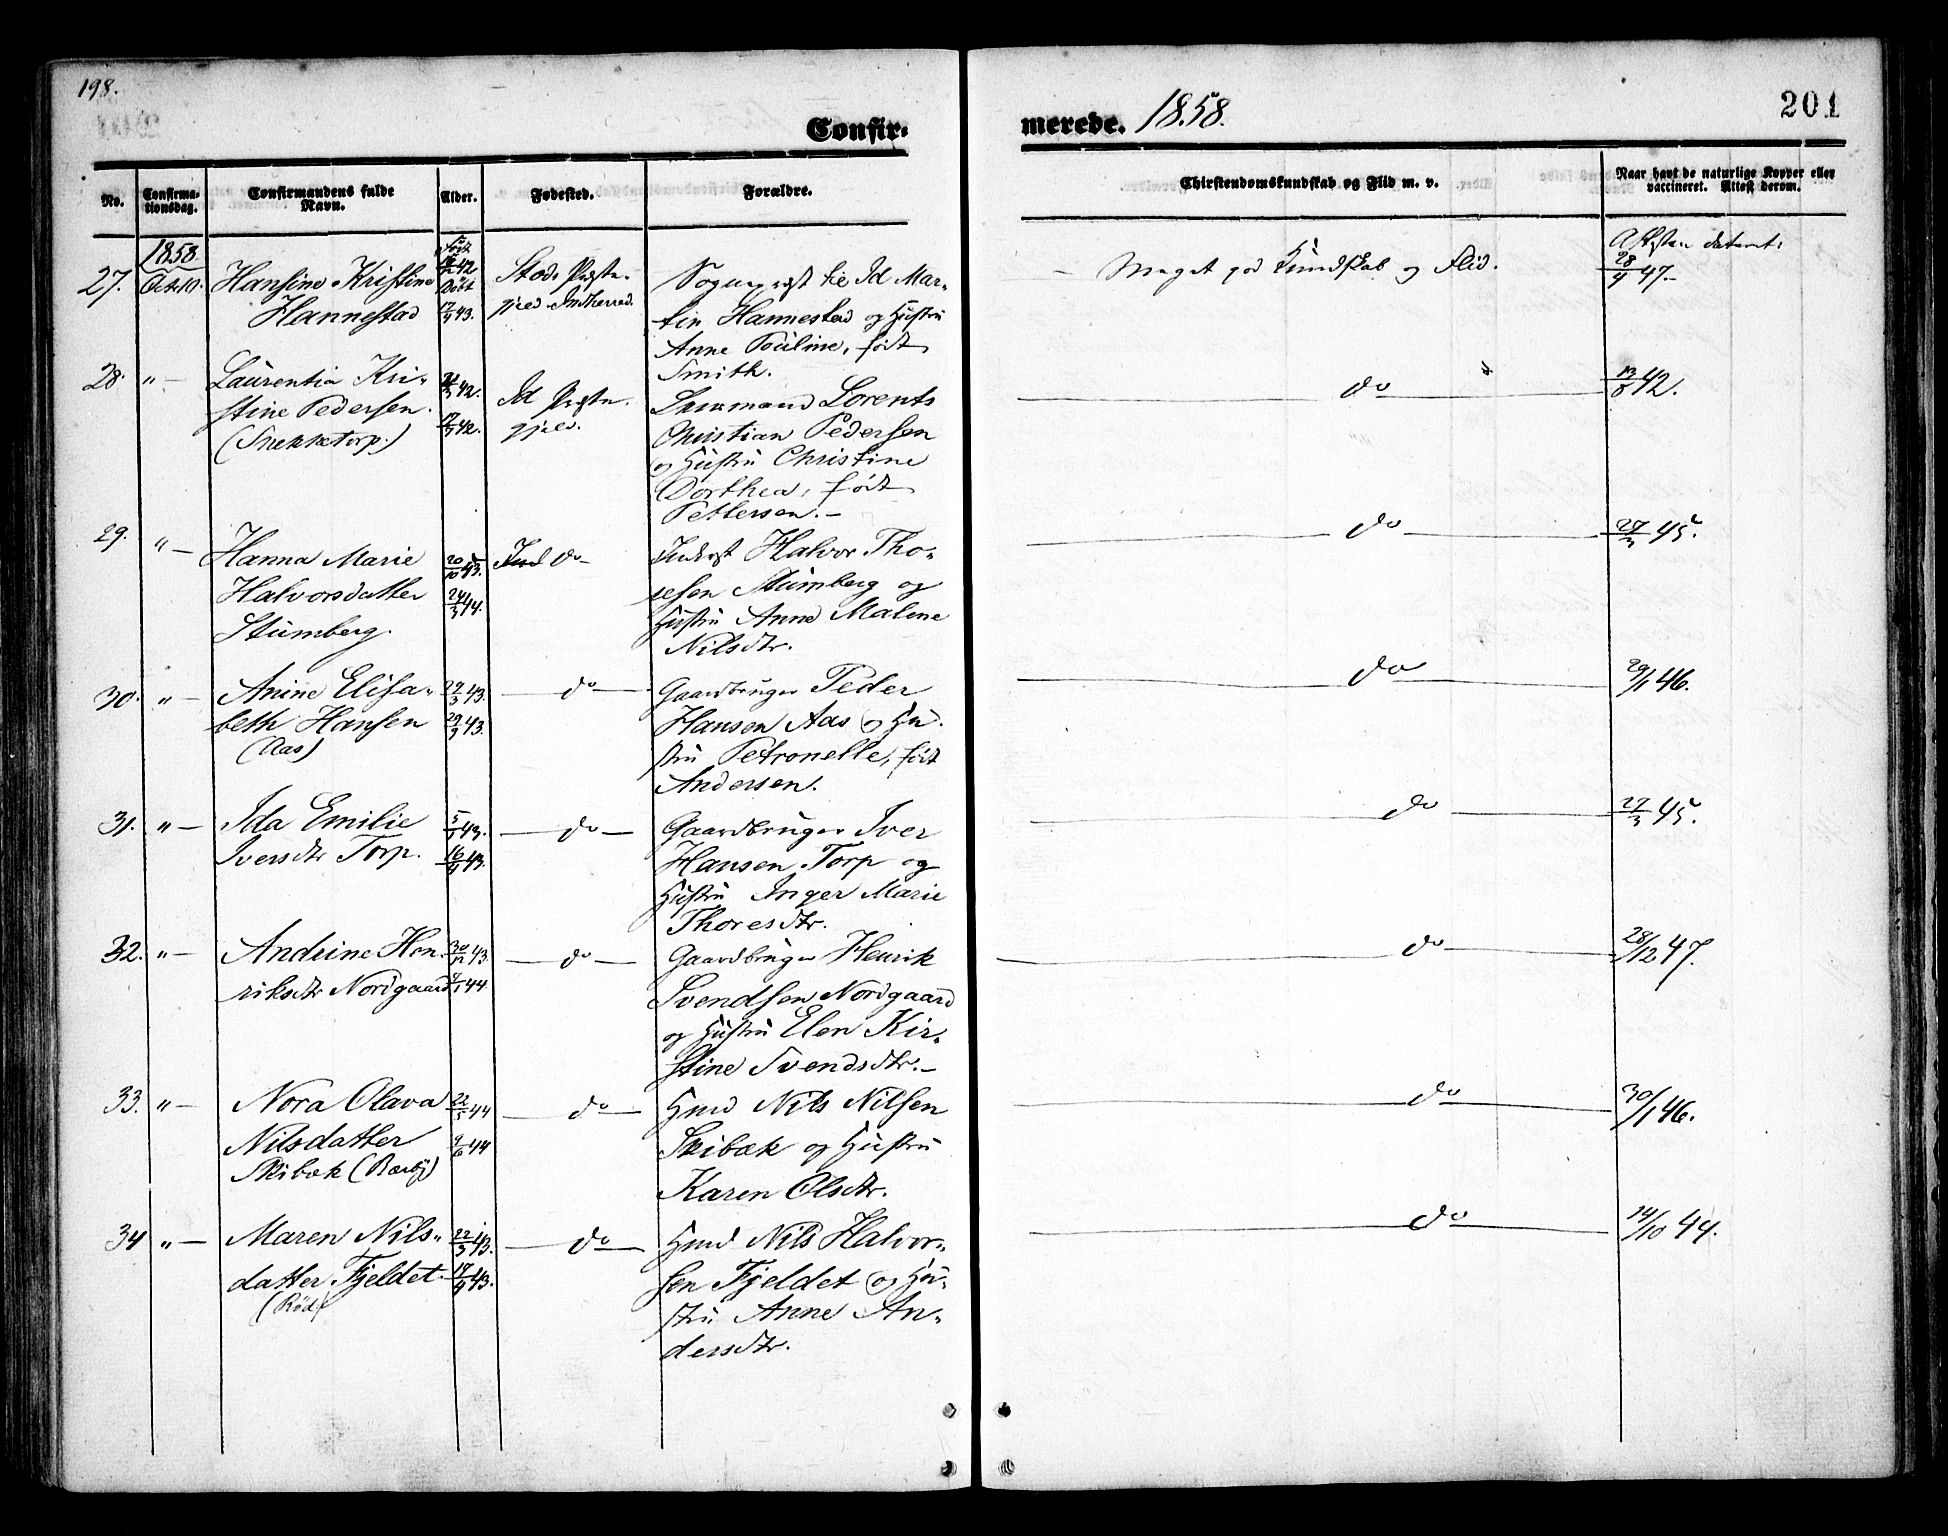 198.
201
Confir=
merede. 1858.
No.
Confirma-
tionsdag.
Confirmandens fulde
Navn.
Alder.
Fødested.
Forældre.
Christendomskundskab og Flid m. v.
Naar havt de naturlige Kopper eller
vaccineret. Attest derom.
1858.
Født
Attesten dateret:
27.
Oct. 10.
Hansine Kristine
Hannestad
42
Døbt
43.
Stods Præste-
gjeld Indherred.
Sogneprest til Id Mar-
tin Hannestad og Hustru
Anne Pouline, født
Smith.
Meget god Kundskab og Flid.
28/4 47.
28. " —
Laurentia Kri-
stine Pedersen.
(Snekketorp.)
42.
17/3 42.
Id Præste-
gjeld.
Lorents
Christian Pedersen
og Hustru Christine
Dorthea, født
Pettersen. —
do
13/8 42.
29. " —
Hanna Marie
Halvorsdatter
Stumberg.
20/10 43.
24/3 44.
do
Inderst Halvor Tho-
resen Stumberg og
Hustru Anne Malene
Nilsdtr.
do
27/3 45.
30. " —
Anine Elisa-
beth Hansen
(Aas)
43.
29/3 43.
do
Gaardbruger Peder
Hansen Aas og Hu-
stru Petronelle, født
Andersen.
do
29/1 46.
31. " —
Ida Emilie
Iversdtr Torp.
43.
16/4 43.
do
Gaardbruger Iver
Hansen Torp og
Hustru Inger Marie
Thoresdtr.
do
27/3 45.
32. " —
Andrine Hen-
riksdtr Nordgaard
30/12 43.
44
do
Gaardbruger Henrik
Svendsen Nordgaard
og Hustru Elen Kir-
stine Svendsdtr. —
do
28/12 47.
33. " —
Nora Olava
Nilsdatter
Skibæk
22/5 44
9/6 44
do
Hmd Nils Nilsen
Skibæk og Hustru
Karen Olsdtr.
do
30/1 46.
34 " —
Maren Nils-
datter Fjeldet.
(Rød)
22/3 43.
17/4 43.
do
Hmd Nils Halvor-
sen Fjeldet og Hu-
stru Anne An-
dersdtr.
do
14/10 44.